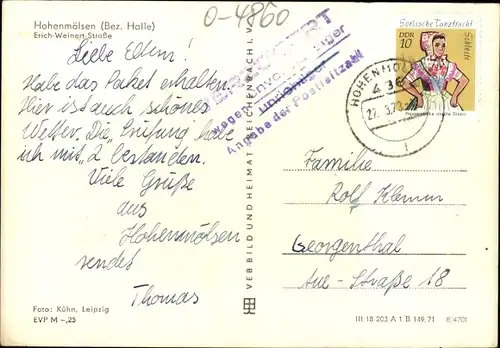 O-4860
Hohenmölsen (Bez. Halle)
Erich-Weinert-Straße
Liebe Eltern!
Habe das Paket erhalten.
Hier ist auch schönes
Wetter. Die Prüfung habe
ich mit „2 bestanden.
Viele Grüße
aus
Hohenmölsen
sendet
Thomas
Foto: Kühn, Leipzig
EVP M –,25
VEB BILD UND HEIMAT REICHENBACH I. V.
wegen
Angabe der Postleitzahl
HOHENMÖL
Sorbische Tanztracht
DDR
10
Schleife
Familie
Rolf Klemm
Georgenthal
Aue-Straße 18
III 18 203 A 1 B 149 71
8/4701